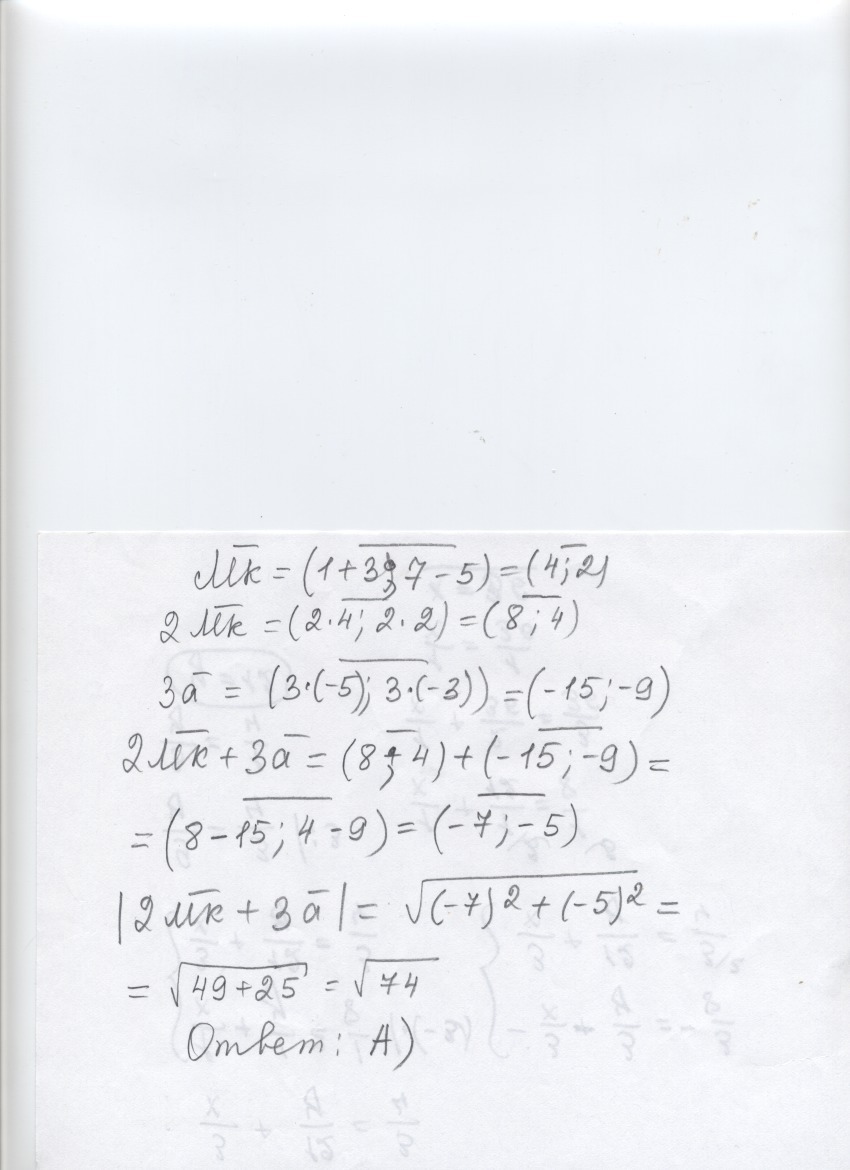 MK = (1+3; 7-5) = (4; 2)
2 MK = (2·4; 2·2) = (8; 4)
3a = (3·(-5); 3·(-3)) = (-15; -9)
2MK + 3a = (8; 4) + (-15; -9) =
= (8-15; 4-9) = (-7; -5)
|2MK + 3a| = √(-7)² + (-5)² =
= √49+25 = √74
Ответ: А)